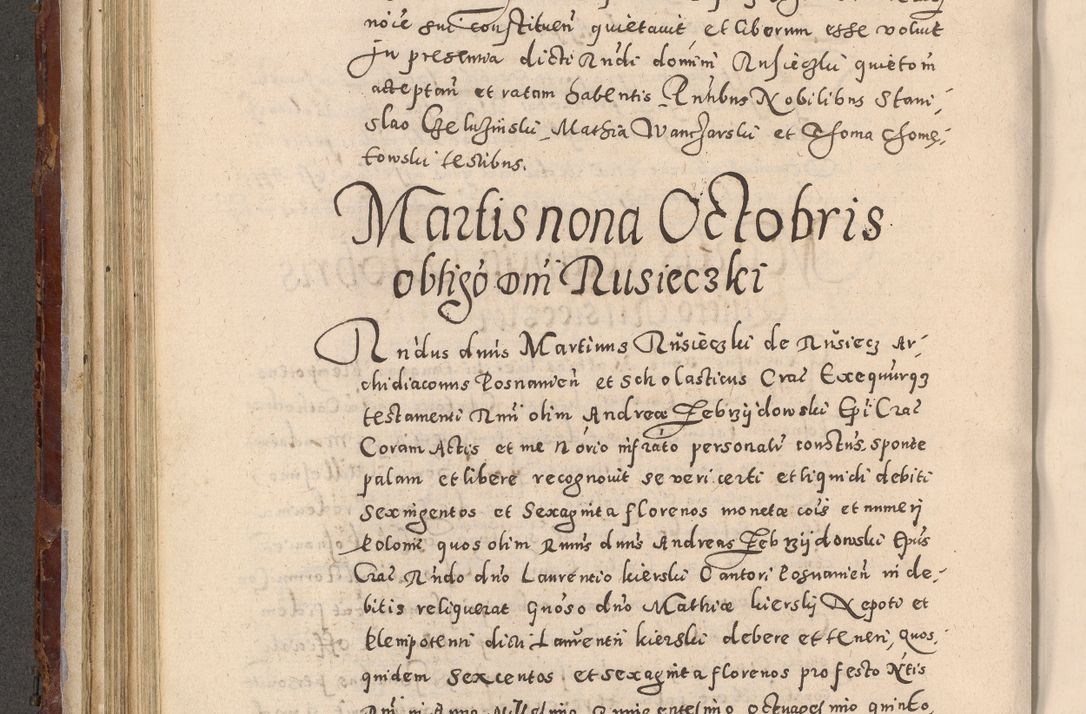 noie sui constituen̄ quietauit et liberum esse voluit
In presentia dicti Rndi domini Rusieczki quietom
acceptan̄ et ratam habentis Pntibus Nobilibus Stani-
slao Czeluzinski, Mathia Wanczarski et Thoma Chome,-
towski testibus.
Martis nona Octobris
obligō dni Rusieczki
Rndus dnus Martinus Rusieczki de Rusiecz Ar,-
chidiaconus Posnanien̄ et Scholasticus Crac Exequutorq3
testamenti Rmi olim Andreæ Zebrzijdowski Epi Crac
Coram Actis et me Norio infrato personatr constus, sponte
palam et libere recognouit se veri certi et liquidi debiti
Sexingentos et Sexaginta florenos monetæ cois et numerj
Polonic quos olim Rmus dnus Andreas Zebrzijdowski Epus
Crac Rndo dno Laurentio kierski Cantori Posnanien̄ in de,-
bitis reliquerat Gnoso dno Mathiæ kierskj Nepoti et
Plenipotenti dicti Laurentii kierski debere et teneri, quos,
quidem Sexcentos et sexaginta florenos pro festo Ntis
Dni in Anno Millesimo Quingentesimo octuagesimo quinto,